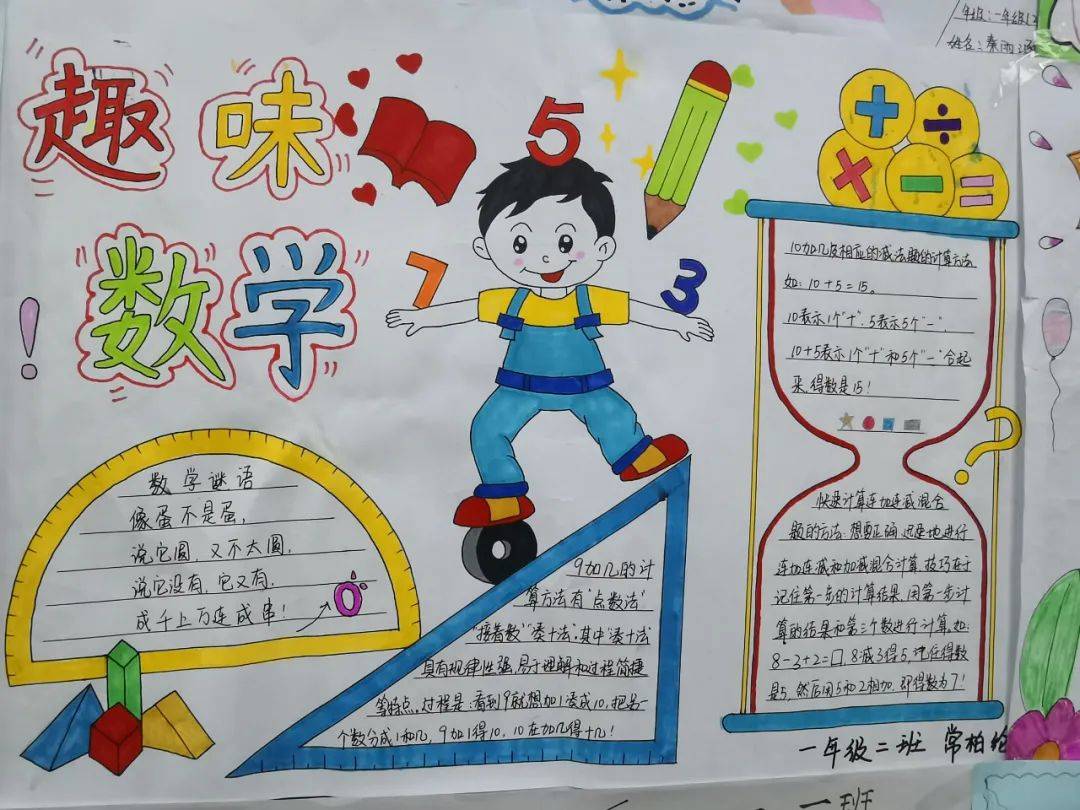 趣味
数学
5
7
3
+ ÷
× − =
数学谜语
像蛋不是蛋,
说它圆,又不太圆.
说它没有,它又有.
成千上万连成串!
0
9加几的计
算方法有"点数法"
"接着数""凑十法".其中"凑十法"
具有规律性强,易于理解和过程简捷
等特点,过程是:看到9就想加1凑成10,把另一
个数分成1和几,9加1得10,10在加几得十几!
10加几及相应的减法题的计算方法.
如:10+5=15。
10表示1个"十".5表示5个"一".
10+5表示1个"十"和5个"一"合起
来,得数是15!
?
快速计算连加连减混合
题的方法:想要正确,迅速地进行
连加连减和加减混合计算,技巧在于
记住第一步的计算结果,用第一步计
算的结果和第三个数进行计算.如:
8-3+2=□,8减3得5,记住得数
是5,然后用5和2相加,即得数为7!
一年级二班 常柏
年级:一年级
姓名:秦雨
一班